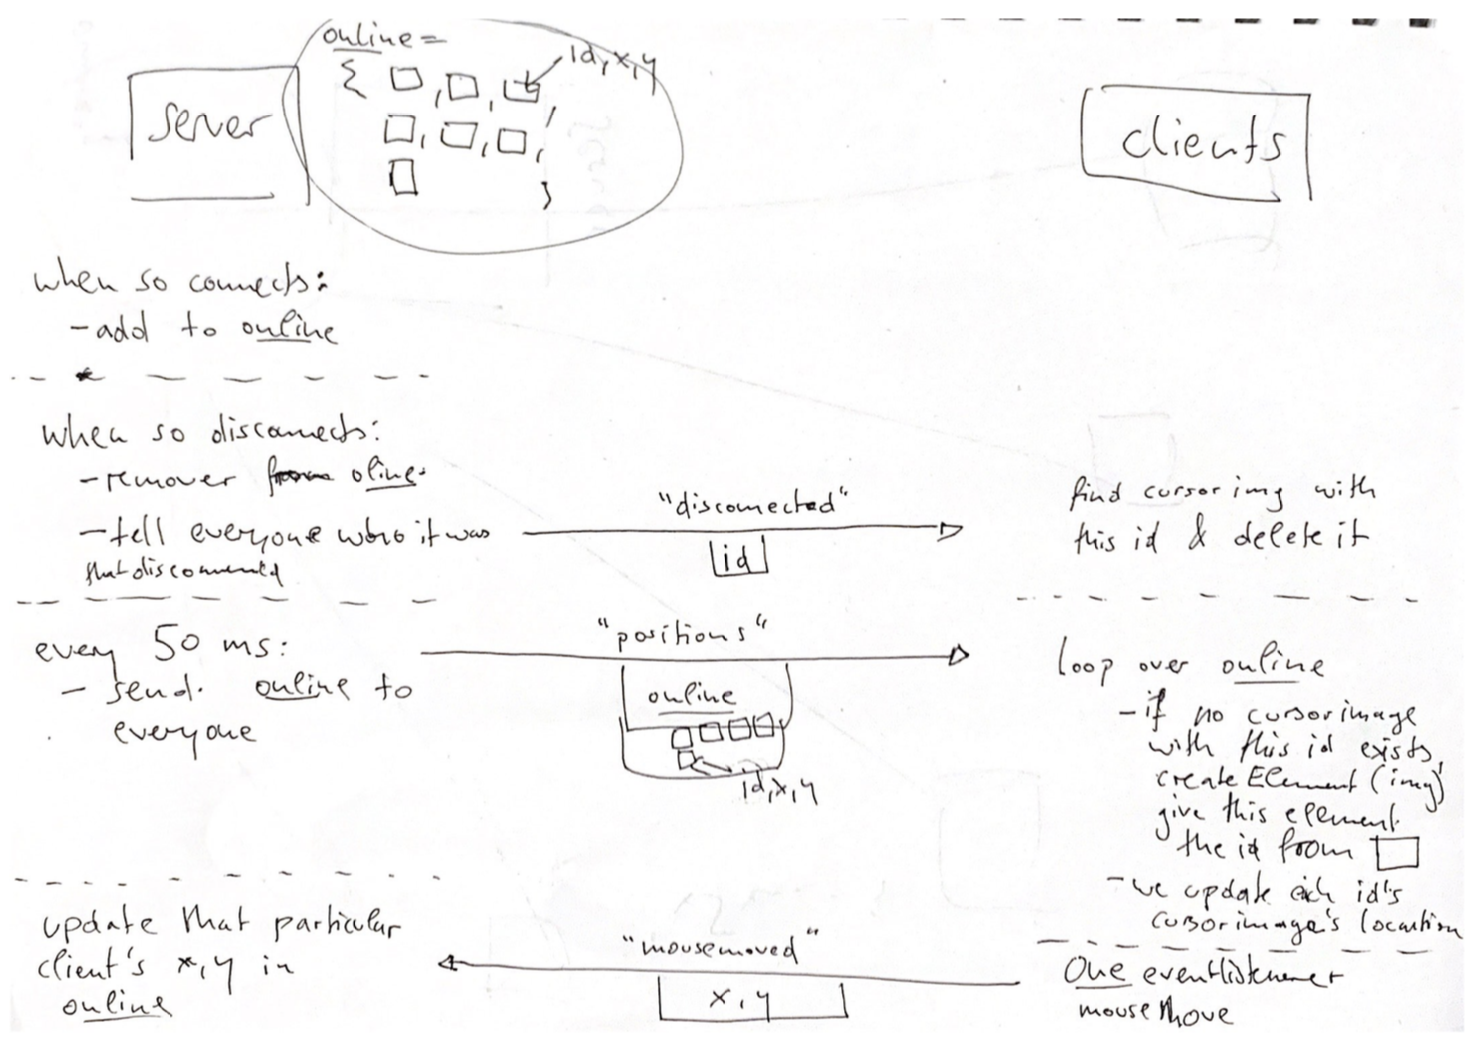 online =
{ , , ,
id, x, y
, , ,
}
server
clients
when so connects:
- add to online
when so disconnects:
- remover from oline
- tell everyone who it was
that disconnected
"disconnected"
id
find cursor img with
this id & delete it
every 50 ms:
- send online to
everyone
"positions"
online
id, x, y
loop over online
- if no cursorimage
with this id exists,
createElement (img)
give this element
the id from
- we update each id's
cursorimage's location
update that particular
client's x, y in
online
"mousemoved"
x, y
One eventlistener
mouse Move